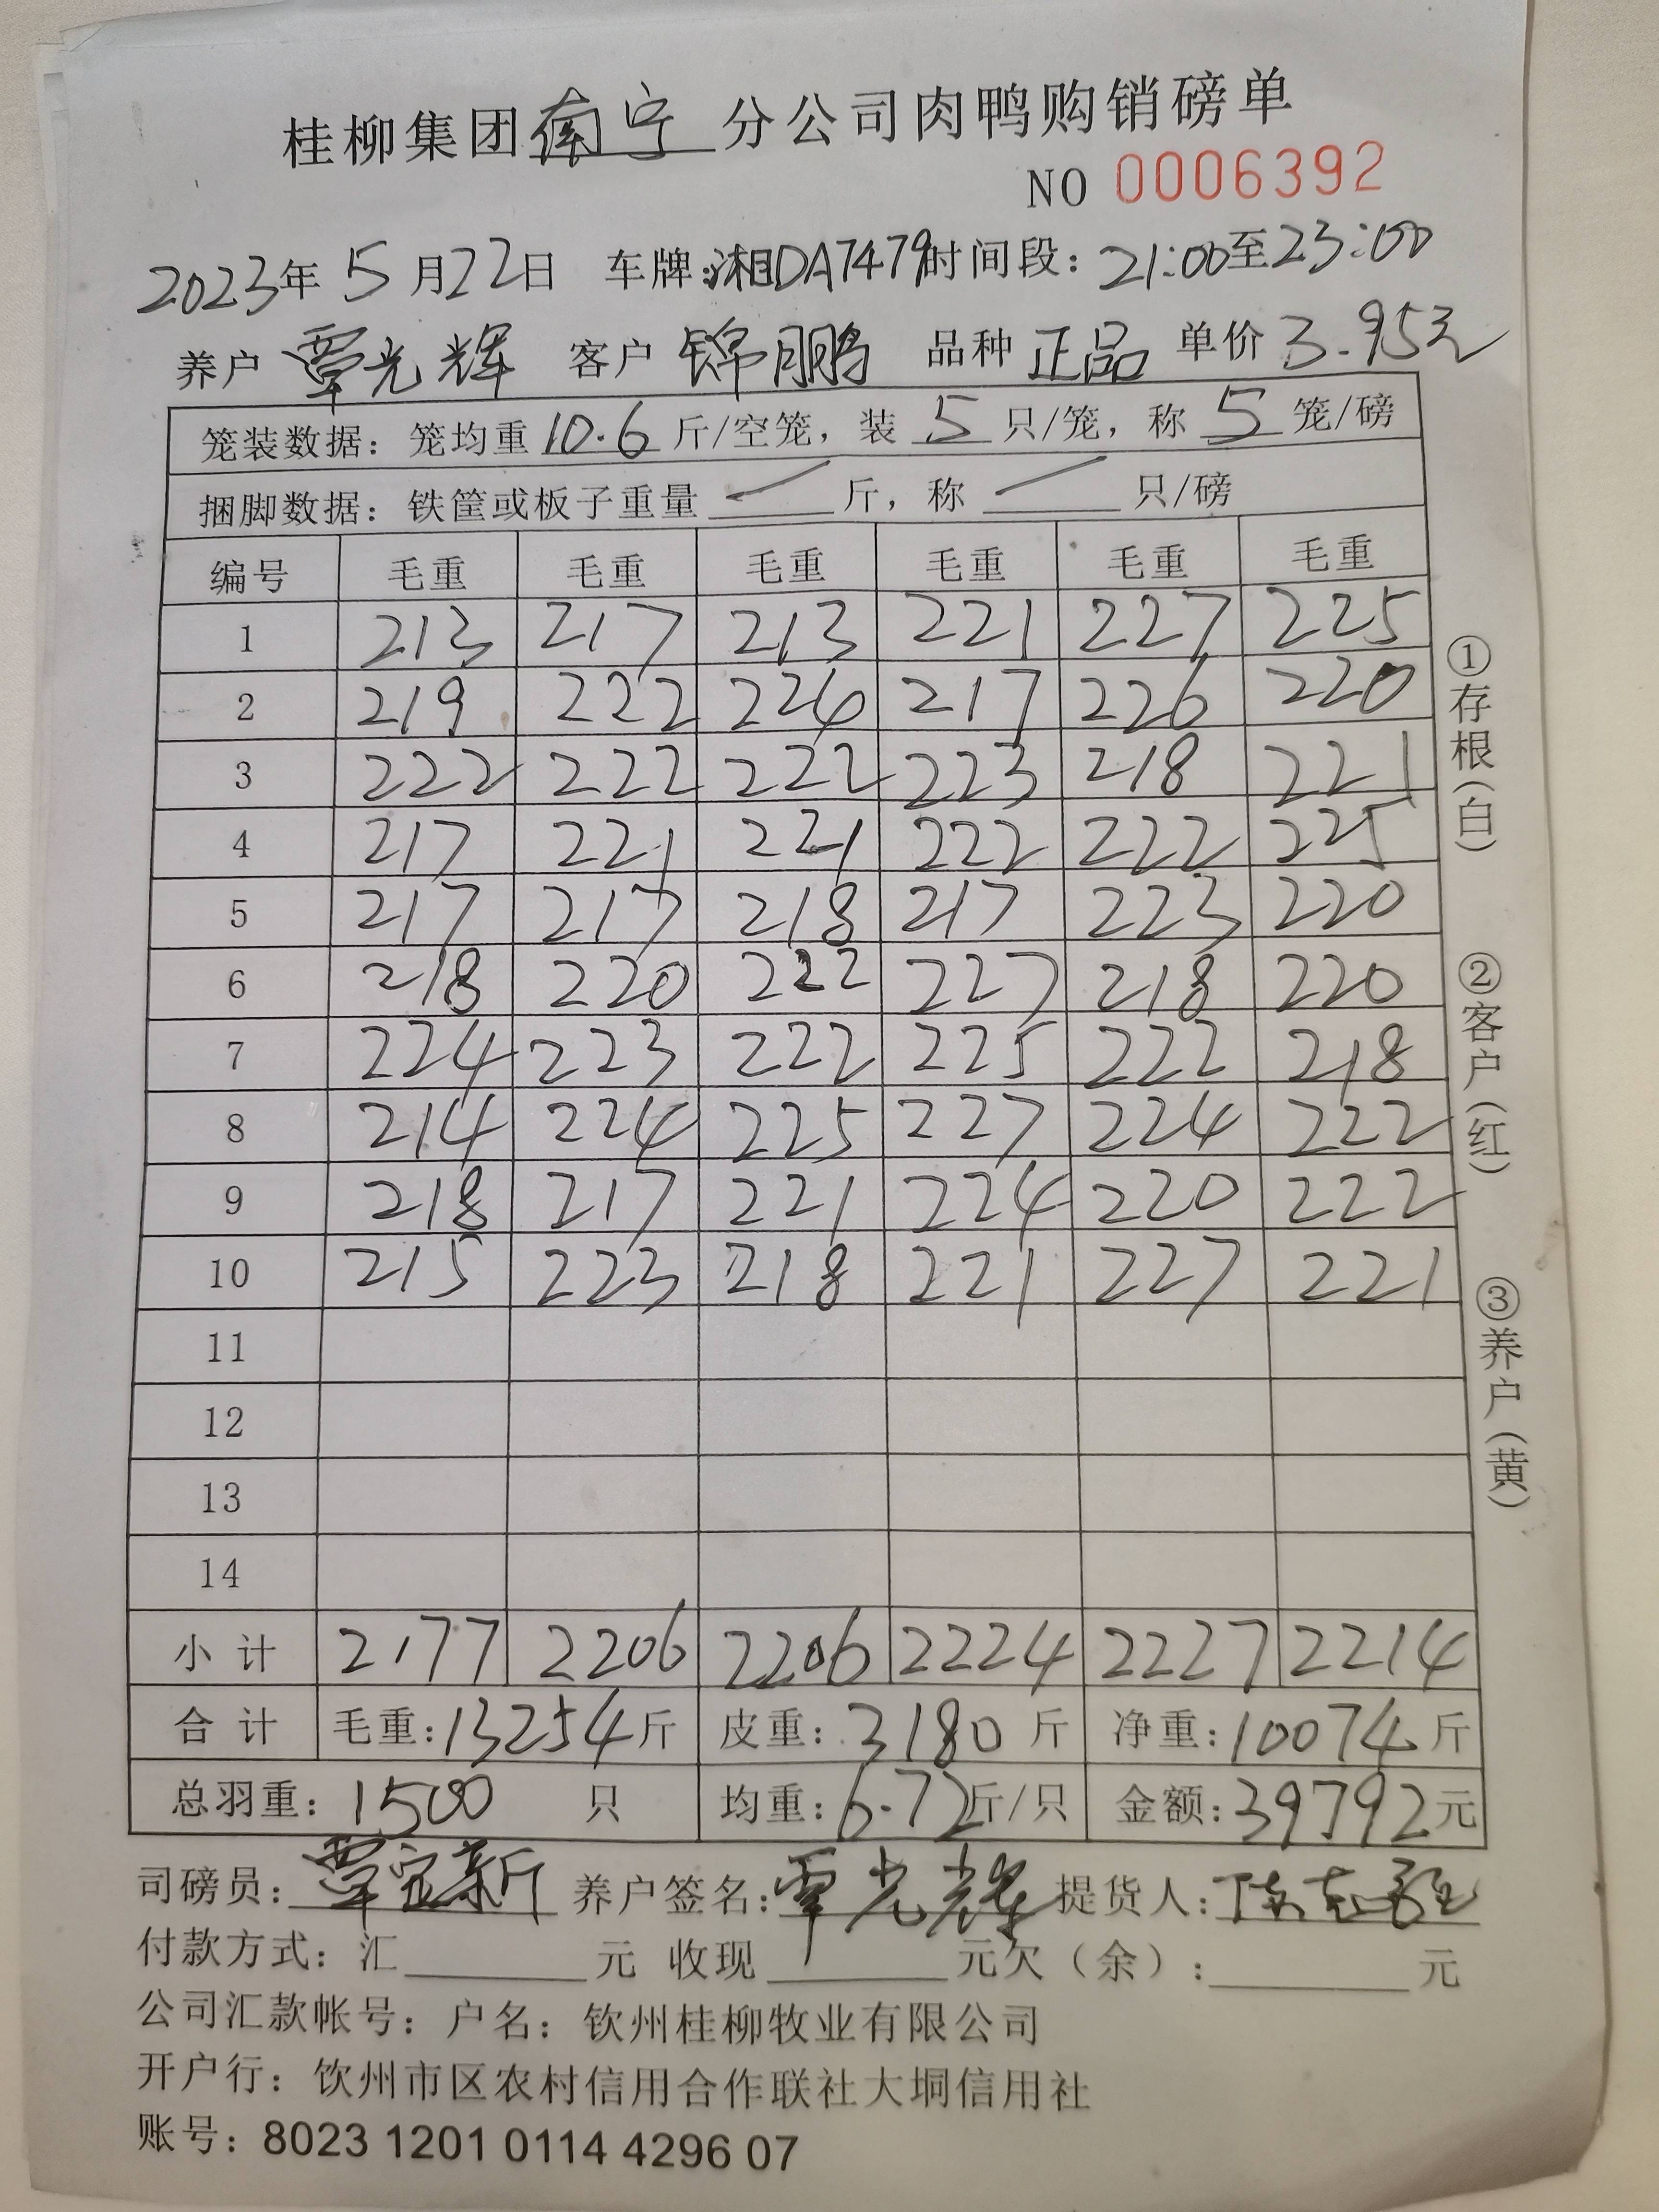 桂柳集团南宁分公司肉鸭购销磅单
NO 0006392
2023年5月22日 车牌:湘DA7479时间段:21:00至23:00
养户 覃光辉 客户 锦鹏 品种 正品 单价 3.95元
笼装数据:笼均重 10.6 斤/空笼,装 5 只/笼,称 5 笼/磅
捆脚数据:铁筐或板子重量 / 斤,称 / 只/磅
编号 毛重 毛重 毛重 毛重 毛重 毛重
1 213 217 213 221 227 225
2 219 222 224 217 226 220
3 222 222 222 223 218 221
4 217 221 221 222 222 225
5 217 217 218 217 223 220
6 218 220 222 227 218 220
7 224 223 222 225 222 218
8 214 224 225 227 224 222
9 218 217 221 224 220 222
10 215 223 218 221 227 221
11
12
13
14
小计 2177 2206 2206 2224 2227 2214
合计 毛重:13254斤 皮重:3180 斤 净重:10074斤
总羽重:1500 只 均重:6.72斤/只 金额:39792元
司磅员:覃宝新 养户签名:覃光辉 提货人:陈
付款方式:汇______元 收现______元欠(余):______元
公司汇款帐号:户名:钦州桂柳牧业有限公司
开户行:饮州市区农村信用合作联社大垌信用社
账号:8023 1201 0114 4296 07
①存根(白)
②客户(红)
③养户(黄)